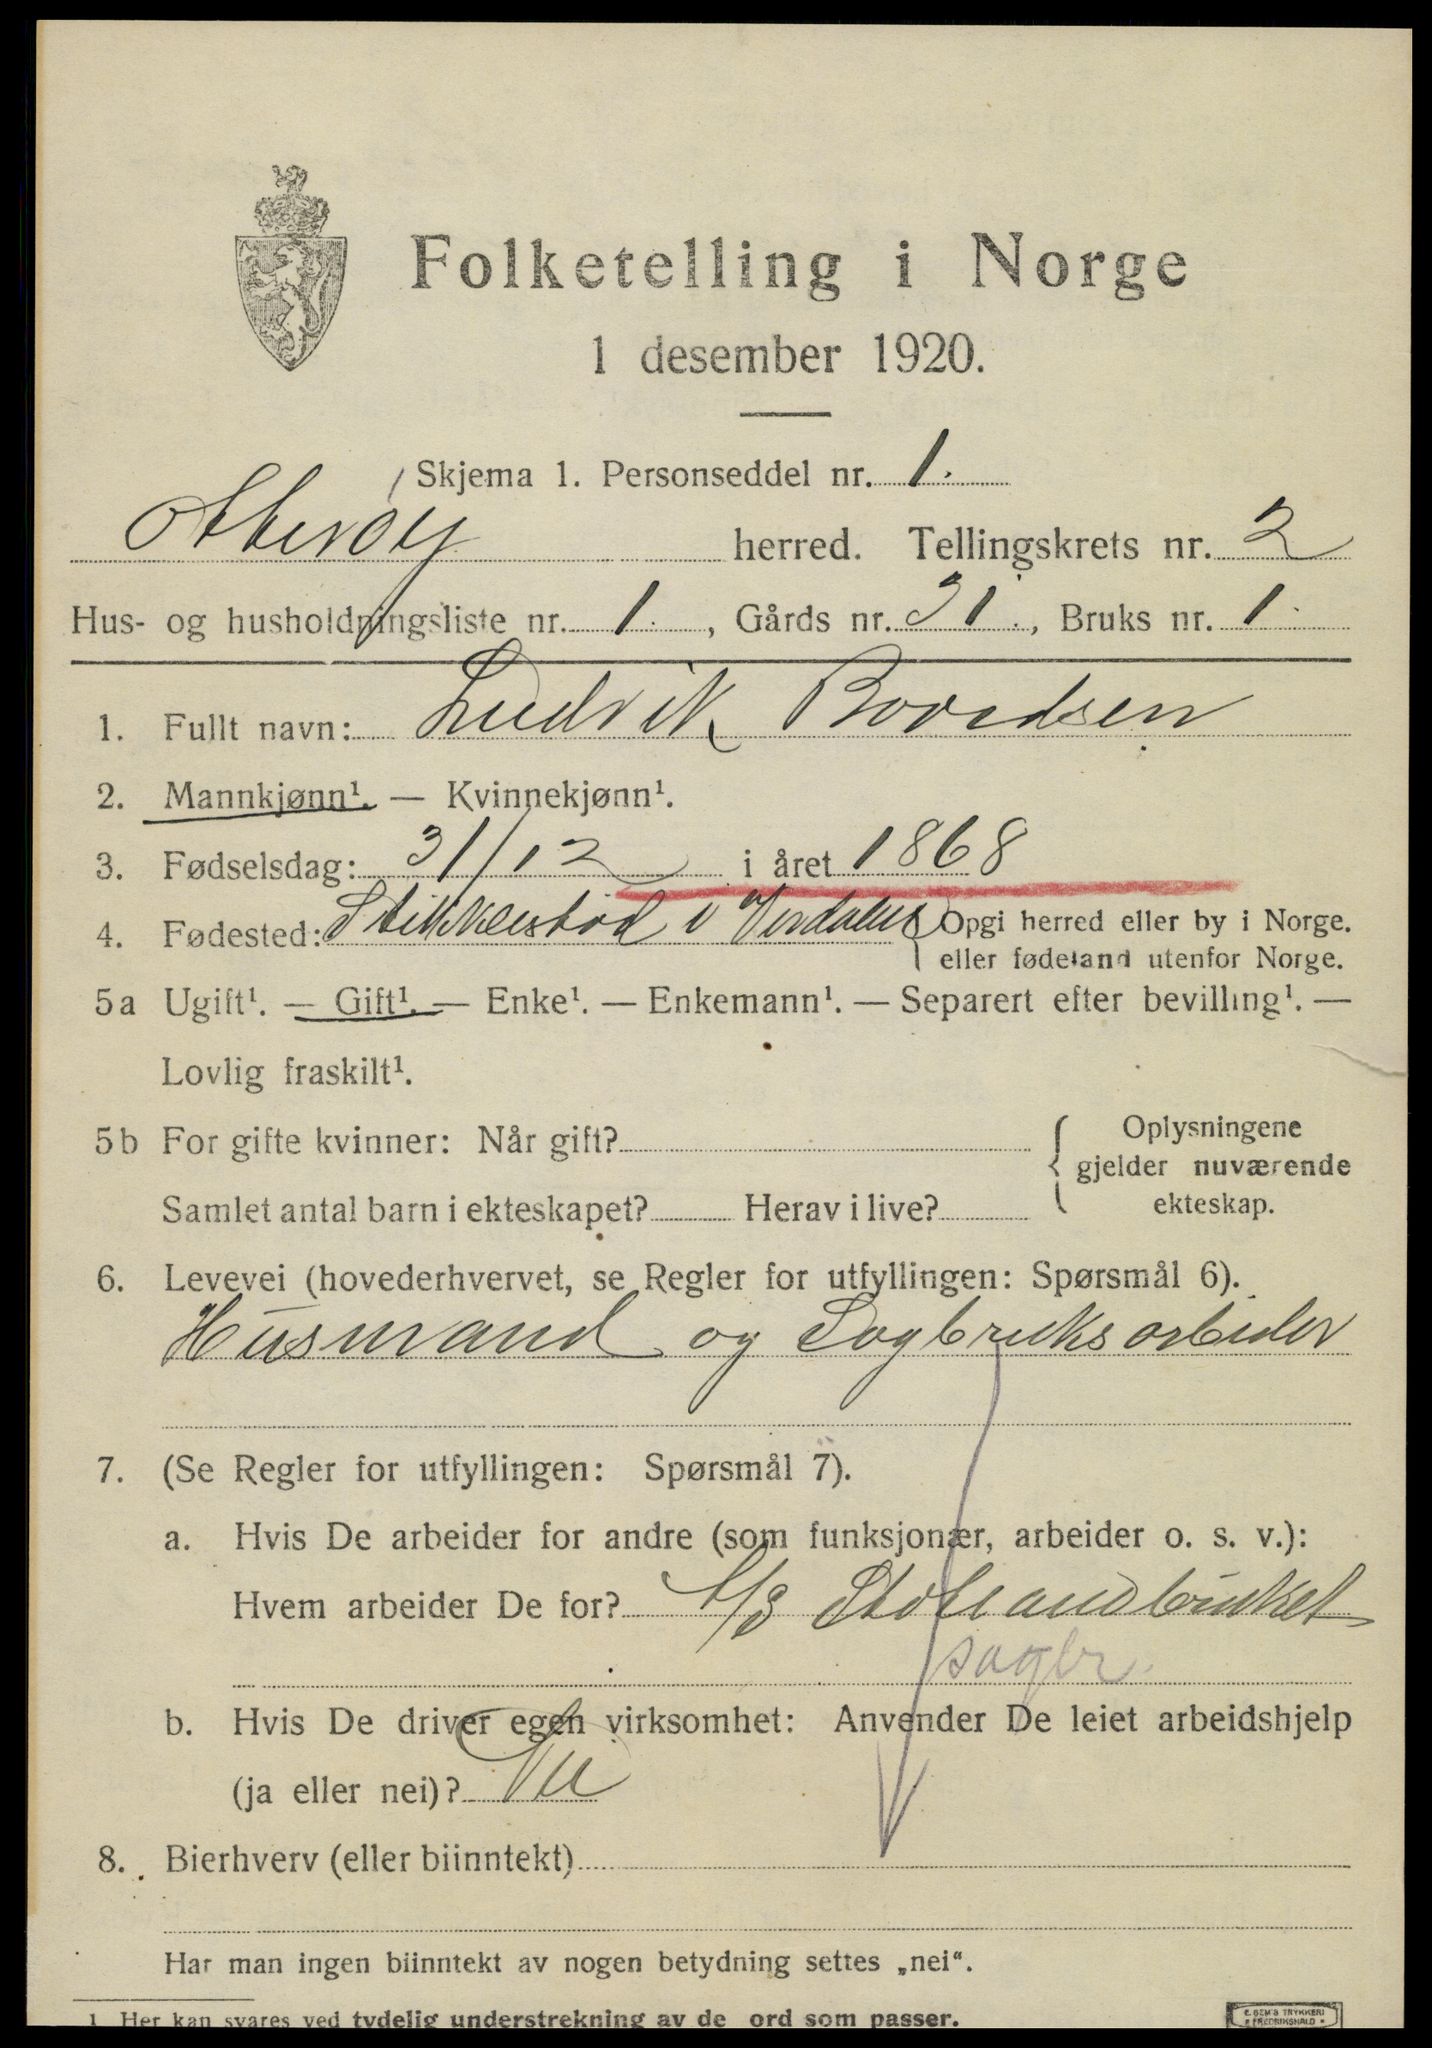 Folketelling i Norge
1 desember 1920.
Skjema 1. Personseddel nr. 1.
Otterøy herred. Tellingskrets nr. 2
Hus- og husholdningsliste nr. 1. , Gårds nr. 31. , Bruks nr. 1.
1. Fullt navn: Ludvik Bovedsen
2. Mannkjønn¹. — Kvinnekjønn¹.
3. Fødselsdag: 31/12 i året 1868
4. Fødested: Stikkelstod i Verdalen { Opgi herred eller by i Norge.
eller fødeland utenfor Norge.
5a Ugift¹. — Gift¹. — Enke¹. — Enkemann¹. — Separert efter bevilling¹. —
Lovlig fraskilt¹.
5b For gifte kvinner: Når gift?
Samlet antal barn i ekteskapet? Herav i live?
{ Oplysningene
gjelder nuværende
ekteskap.
6. Levevei (hovederhvervet, se Regler for utfyllingen: Spørsmål 6).
Husmand og Sagbruksarbeider
7. (Se Regler for utfyllingen: Spørsmål 7).
a. Hvis De arbeider for andre (som funksjonær, arbeider o. s. v.):
Hvem arbeider De for? A/S
sagbr.
b. Hvis De driver egen virksomhet: Anvender De leiet arbeidshjelp
(ja eller nei)? Nei
8. Bierhverv (eller biinntekt)
Har man ingen biinntekt av nogen betydning settes „nei“.
1 Her kan svares ved tydelig understrekning av de ord som passer.
E. SEM'S TRYKKERI
FREDRIKSHALD